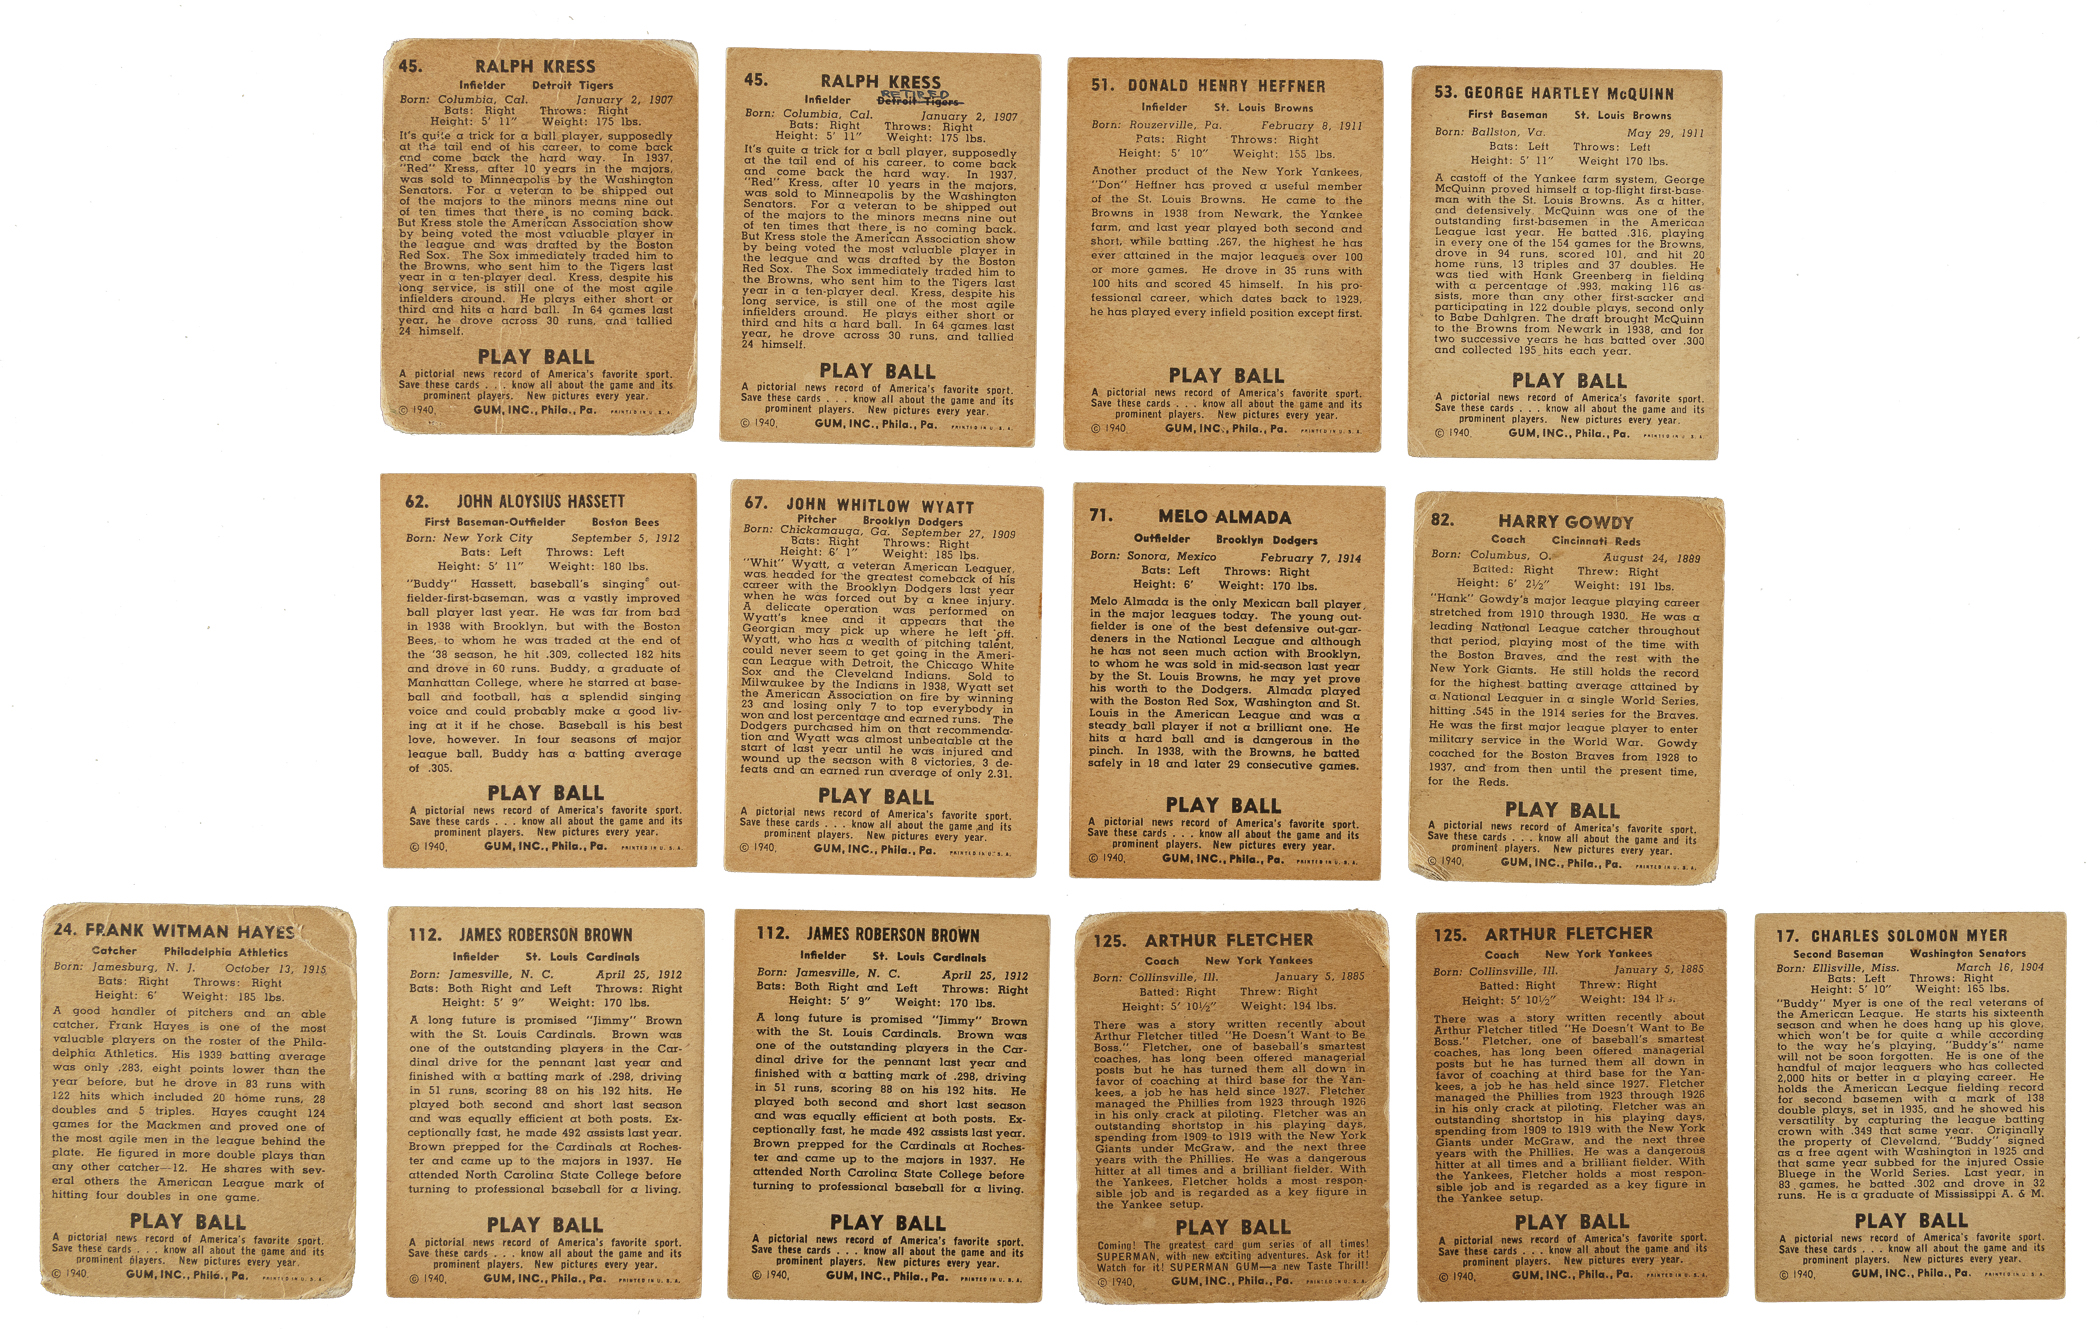 45. RALPH KRESS
Infielder Detroit Tigers
Born: Columbia, Cal. January 2, 1907
Bats: Right Throws: Right
Height: 5' 11" Weight: 175 lbs.
It's quite a trick for a ball player, supposedly
at the tail end of his career, to come back
and come back the hard way. In 1937,
"Red" Kress, after 10 years in the majors,
was sold to Minneapolis by the Washington
Senators. For a veteran to be shipped out
of the majors to the minors means nine out
of ten times that there is no coming back.
But Kress stole the American Association show
by being voted the most valuable player in
the league and was drafted by the Boston
Red Sox. The Sox immediately traded him to
the Browns, who sent him to the Tigers last
year in a ten-player deal. Kress, despite his
long service, is still one of the most agile
infielders around. He plays either short or
third and hits a hard ball. In 64 games last
year, he drove across 30 runs, and tallied
24 himself.
PLAY BALL
A pictorial news record of America's favorite sport.
Save these cards . . . know all about the game and its
prominent players. New pictures every year.
© 1940, GUM, INC., Phila., Pa. PRINTED IN U. S. A.
45. RALPH KRESS
RETIRED
Infielder Detroit Tigers
Born: Columbia, Cal. January 2, 1907
Bats: Right Throws: Right
Height: 5' 11" Weight: 175 lbs.
It's quite a trick for a ball player, supposedly
at the tail end of his career, to come back
and come back the hard way. In 1937,
"Red" Kress, after 10 years in the majors,
was sold to Minneapolis by the Washington
Senators. For a veteran to be shipped out
of the majors to the minors means nine out
of ten times that there is no coming back.
But Kress stole the American Association show
by being voted the most valuable player in
the league and was drafted by the Boston
Red Sox. The Sox immediately traded him to
the Browns, who sent him to the Tigers last
year in a ten-player deal. Kress, despite his
long service, is still one of the most agile
infielders around. He plays either short or
third and hits a hard ball. In 64 games last
year, he drove across 30 runs, and tallied
24 himself.
PLAY BALL
A pictorial news record of America's favorite sport.
Save these cards . . . know all about the game and its
prominent players. New pictures every year.
© 1940, GUM, INC., Phila., Pa. PRINTED IN U. S. A.
51. DONALD HENRY HEFFNER
Infielder St. Louis Browns
Born: Rouzerville, Pa. February 8, 1911
Pats: Right Throws: Right
Height: 5' 10" Weight: 155 lbs.
Another product of the New York Yankees,
"Don" Heffner has proved a useful member
of the St. Louis Browns. He came to the
Browns in 1938 from Newark, the Yankee
farm, and last year played both second and
short, while batting .267, the highest he has
ever attained in the major leagues over 100
or more games. He drove in 35 runs with
100 hits and scored 45 himself. In his pro-
fessional career, which dates back to 1929,
he has played every infield position except first.
PLAY BALL
A pictorial news record of America's favorite sport.
Save these cards . . . know all about the game and its
prominent players. New pictures every year.
© 1940, GUM, INC., Phila., Pa. PRINTED IN U. S. A.
53. GEORGE HARTLEY McQUINN
First Baseman St. Louis Browns
Born: Ballston, Va. May 29, 1911
Bats: Left Throws: Left
Height: 5' 11" Weight 170 lbs.
A castoff of the Yankee farm system, George
McQuinn proved himself a top-flight first-base-
man with the St. Louis Browns. As a hitter,
and defensively, McQuinn was one of the
outstanding first-basemen in the American
League last year. He batted .316, playing
in every one of the 154 games for the Browns,
drove in 94 runs, scored 101, and hit 20
home runs, 13 triples and 37 doubles. He
was tied with Hank Greenberg in fielding
with a percentage of .993, making 116 as-
sists, more than any other first-sacker and
participating in 122 double plays, second only
to Babe Dahlgren. The draft brought McQuinn
to the Browns from Newark in 1938, and for
two successive years he has batted over .300
and collected 195 hits each year.
PLAY BALL
A pictorial news record of America's favorite sport.
Save these cards . . . know all about the game and its
prominent players. New pictures every year.
© 1940, GUM, INC., Phila., Pa. PRINTED IN U. S. A.
62. JOHN ALOYSIUS HASSETT
First Baseman-Outfielder Boston Bees
Born: New York City September 5, 1912
Bats: Left Throws: Left
Height: 5' 11" Weight: 180 lbs.
"Buddy" Hassett, baseball's singing out-
fielder-first-baseman, was a vastly improved
ball player last year. He was far from bad
in 1938 with Brooklyn, but with the Boston
Bees, to whom he was traded at the end of
the '38 season, he hit .309, collected 182 hits
and drove in 60 runs. Buddy, a graduate of
Manhattan College, where he starred at base-
ball and football, has a splendid singing
voice and could probably make a good liv-
ing at it if he chose. Baseball is his best
love, however. In four seasons of major
league ball, Buddy has a batting average
of .305.
PLAY BALL
A pictorial news record of America's favorite sport.
Save these cards . . . know all about the game and its
prominent players. New pictures every year.
© 1940, GUM, INC., Phila., Pa. PRINTED IN U. S. A.
67. JOHN WHITLOW WYATT
Pitcher Brooklyn Dodgers
Born: Chickamauga, Ga. September 27, 1909
Bats: Right Throws: Right
Height: 6' 1" Weight: 185 lbs.
"Whit" Wyatt, a veteran American Leaguer,
was headed for the greatest comeback of his
career with the Brooklyn Dodgers last year
when he was forced out by a knee injury.
A delicate operation was performed on
Wyatt's knee and it appears that the
Georgian may pick up where he left off.
Wyatt, who has a wealth of pitching talent,
could never seem to get going in the Ameri-
can League with Detroit, the Chicago White
Sox and the Cleveland Indians. Sold to
Milwaukee by the Indians in 1938, Wyatt set
the American Association on fire by winning
23 and losing only 7 to top everybody in
won and lost percentage and earned runs. The
Dodgers purchased him on that recommenda-
tion and Wyatt was almost unbeatable at the
start of last year until he was injured and
wound up the season with 8 victories, 3 de-
feats and an earned run average of only 2.31.
PLAY BALL
A pictorial news record of America's favorite sport.
Save these cards . . . know all about the game and its
prominent players. New pictures every year.
© 1940, GUM, INC., Phila., Pa. PRINTED IN U. S. A.
71. MELO ALMADA
Outfielder Brooklyn Dodgers
Born: Sonora, Mexico February 7, 1914
Bats: Left Throws: Right
Height: 6' Weight: 170 lbs.
Melo Almada is the only Mexican ball player
in the major leagues today. The young out-
fielder is one of the best defensive out-gar-
deners in the National League and although
he has not seen much action with Brooklyn,
to whom he was sold in mid-season last year
by the St. Louis Browns, he may yet prove
his worth to the Dodgers. Almada played
with the Boston Red Sox, Washington and St.
Louis in the American League and was a
steady ball player if not a brilliant one. He
hits a hard ball and is dangerous in the
pinch. In 1938, with the Browns, he batted
safely in 18 and later 29 consecutive games.
PLAY BALL
A pictorial news record of America's favorite sport.
Save these cards . . . know all about the game and its
prominent players. New pictures every year.
© 1940, GUM, INC., Phila., Pa. PRINTED IN U. S. A.
82. HARRY GOWDY
Coach Cincinnati Reds
Born: Columbus, O. August 24, 1889
Batted: Right Threw: Right
Height: 6' 2½" Weight: 191 lbs.
"Hank" Gowdy's major league playing career
stretched from 1910 through 1930. He was a
leading National League catcher throughout
that period, playing most of the time with
the Boston Braves, and the rest with the
New York Giants. He still holds the record
for the highest batting average attained by
a National Leaguer in a single World Series,
hitting .545 in the 1914 series for the Braves.
He was the first major league player to enter
military service in the World War. Gowdy
coached for the Boston Braves from 1928 to
1937, and from then until the present time,
for the Reds.
PLAY BALL
A pictorial news record of America's favorite sport.
Save these cards . . . know all about the game and its
prominent players. New pictures every year.
© 1940, GUM, INC., Phila., Pa. PRINTED IN U. S. A.
24. FRANK WITMAN HAYES
Catcher Philadelphia Athletics
Born: Jamesburg, N. J. October 13, 1915
Bats: Right Throws: Right
Height: 6' Weight: 185 lbs.
A good handler of pitchers and an able
catcher, Frank Hayes is one of the most
valuable players on the roster of the Phila-
delphia Athletics. His 1939 batting average
was only .283, eight points lower than the
year before, but he drove in 83 runs with
122 hits which included 20 home runs, 28
doubles and 5 triples. Hayes caught 124
games for the Mackmen and proved one of
the most agile men in the league behind the
plate. He figured in more double plays than
any other catcher—12. He shares with sev-
eral others the American League mark of
hitting four doubles in one game.
PLAY BALL
A pictorial news record of America's favorite sport.
Save these cards . . . know all about the game and its
prominent players. New pictures every year.
© 1940, GUM, INC., Phila., Pa. PRINTED IN U. S. A.
112. JAMES ROBERSON BROWN
Infielder St. Louis Cardinals
Born: Jamesville, N. C. April 25, 1912
Bats: Both Right and Left Throws: Right
Height: 5' 9" Weight: 170 lbs.
A long future is promised "Jimmy" Brown
with the St. Louis Cardinals. Brown was
one of the outstanding players in the Car-
dinal drive for the pennant last year and
finished with a batting mark of .298, driving
in 51 runs, scoring 88 on his 192 hits. He
played both second and short last season
and was equally efficient at both posts. Ex-
ceptionally fast, he made 492 assists last year.
Brown prepped for the Cardinals at Roches-
ter and came up to the majors in 1937. He
attended North Carolina State College before
turning to professional baseball for a living.
PLAY BALL
A pictorial news record of America's favorite sport.
Save these cards . . . know all about the game and its
prominent players. New pictures every year.
© 1940, GUM, INC., Phila., Pa. PRINTED IN U. S. A.
112. JAMES ROBERSON BROWN
Infielder St. Louis Cardinals
Born: Jamesville, N. C. April 25, 1912
Bats: Both Right and Left Throws: Right
Height: 5' 9" Weight: 170 lbs.
A long future is promised "Jimmy" Brown
with the St. Louis Cardinals. Brown was
one of the outstanding players in the Car-
dinal drive for the pennant last year and
finished with a batting mark of .298, driving
in 51 runs, scoring 88 on his 192 hits. He
played both second and short last season
and was equally efficient at both posts. Ex-
ceptionally fast, he made 492 assists last year.
Brown prepped for the Cardinals at Roches-
ter and came up to the majors in 1937. He
attended North Carolina State College before
turning to professional baseball for a living.
PLAY BALL
A pictorial news record of America's favorite sport.
Save these cards . . . know all about the game and its
prominent players. New pictures every year.
© 1940, GUM, INC., Phila., Pa. PRINTED IN U. S. A.
125. ARTHUR FLETCHER
Coach New York Yankees
Born: Collinsville, Ill. January 5, 1885
Batted: Right Threw: Right
Height: 5' 10½" Weight: 194 lbs.
There was a story written recently about
Arthur Fletcher titled "He Doesn't Want to Be
Boss." Fletcher, one of baseball's smartest
coaches, has long been offered managerial
posts but he has turned them all down in
favor of coaching at third base for the Yan-
kees, a job he has held since 1927. Fletcher
managed the Phillies from 1923 through 1926
in his only crack at piloting. Fletcher was an
outstanding shortstop in his playing days,
spending from 1909 to 1919 with the New York
Giants under McGraw, and the next three
years with the Phillies. He was a dangerous
hitter at all times and a brilliant fielder. With
the Yankees, Fletcher holds a most respon-
sible job and is regarded as a key figure in
the Yankee setup.
PLAY BALL
Coming! The greatest card gum series of all times!
SUPERMAN, with new exciting adventures. Ask for it!
Watch for it! SUPERMAN GUM—a new Taste Thrill!
© 1940, GUM, INC., Phila., Pa. PRINTED IN U. S. A.
125. ARTHUR FLETCHER
Coach New York Yankees
Born: Collinsville, Ill. January 5, 1885
Batted: Right Threw: Right
Height: 5' 10½" Weight: 194 lbs.
There was a story written recently about
Arthur Fletcher titled "He Doesn't Want to Be
Boss." Fletcher, one of baseball's smartest
coaches, has long been offered managerial
posts but he has turned them all down in
favor of coaching at third base for the Yan-
kees, a job he has held since 1927. Fletcher
managed the Phillies from 1923 through 1926
in his only crack at piloting. Fletcher was an
outstanding shortstop in his playing days,
spending from 1909 to 1919 with the New York
Giants under McGraw, and the next three
years with the Phillies. He was a dangerous
hitter at all times and a brilliant fielder. With
the Yankees, Fletcher holds a most respon-
sible job and is regarded as a key figure in
the Yankee setup.
PLAY BALL
A pictorial news record of America's favorite sport.
Save these cards . . . know all about the game and its
prominent players. New pictures every year.
© 1940, GUM, INC., Phila., Pa. PRINTED IN U. S. A.
17. CHARLES SOLOMON MYER
Second Baseman Washington Senators
Born: Ellisville, Miss. March 16, 1904
Bats: Left Throws: Right
Height: 5' 10" Weight: 165 lbs.
"Buddy" Myer is one of the real veterans of
the American League. He starts his sixteenth
season and when he does hang up his glove,
which won't be for quite a while according
to the way he's playing, "Buddy's" name
will not be soon forgotten. He is one of the
handful of major leaguers who has collected
2,000 hits or better in a playing career. He
holds the American League fielding record
for second basemen with a mark of 138
double plays, set in 1935, and he showed his
versatility by capturing the league batting
crown with .349 that same year. Originally
the property of Cleveland, "Buddy" signed
as a free agent with Washington in 1925 and
that same year subbed for the injured Ossie
Bluege in the World Series. Last year, in
83 games, he batted .302 and drove in 32
runs. He is a graduate of Mississippi A. & M.
PLAY BALL
A pictorial news record of America's favorite sport.
Save these cards . . . know all about the game and its
prominent players. New pictures every year.
© 1940, GUM, INC., Phila., Pa. PRINTED IN U. S. A.